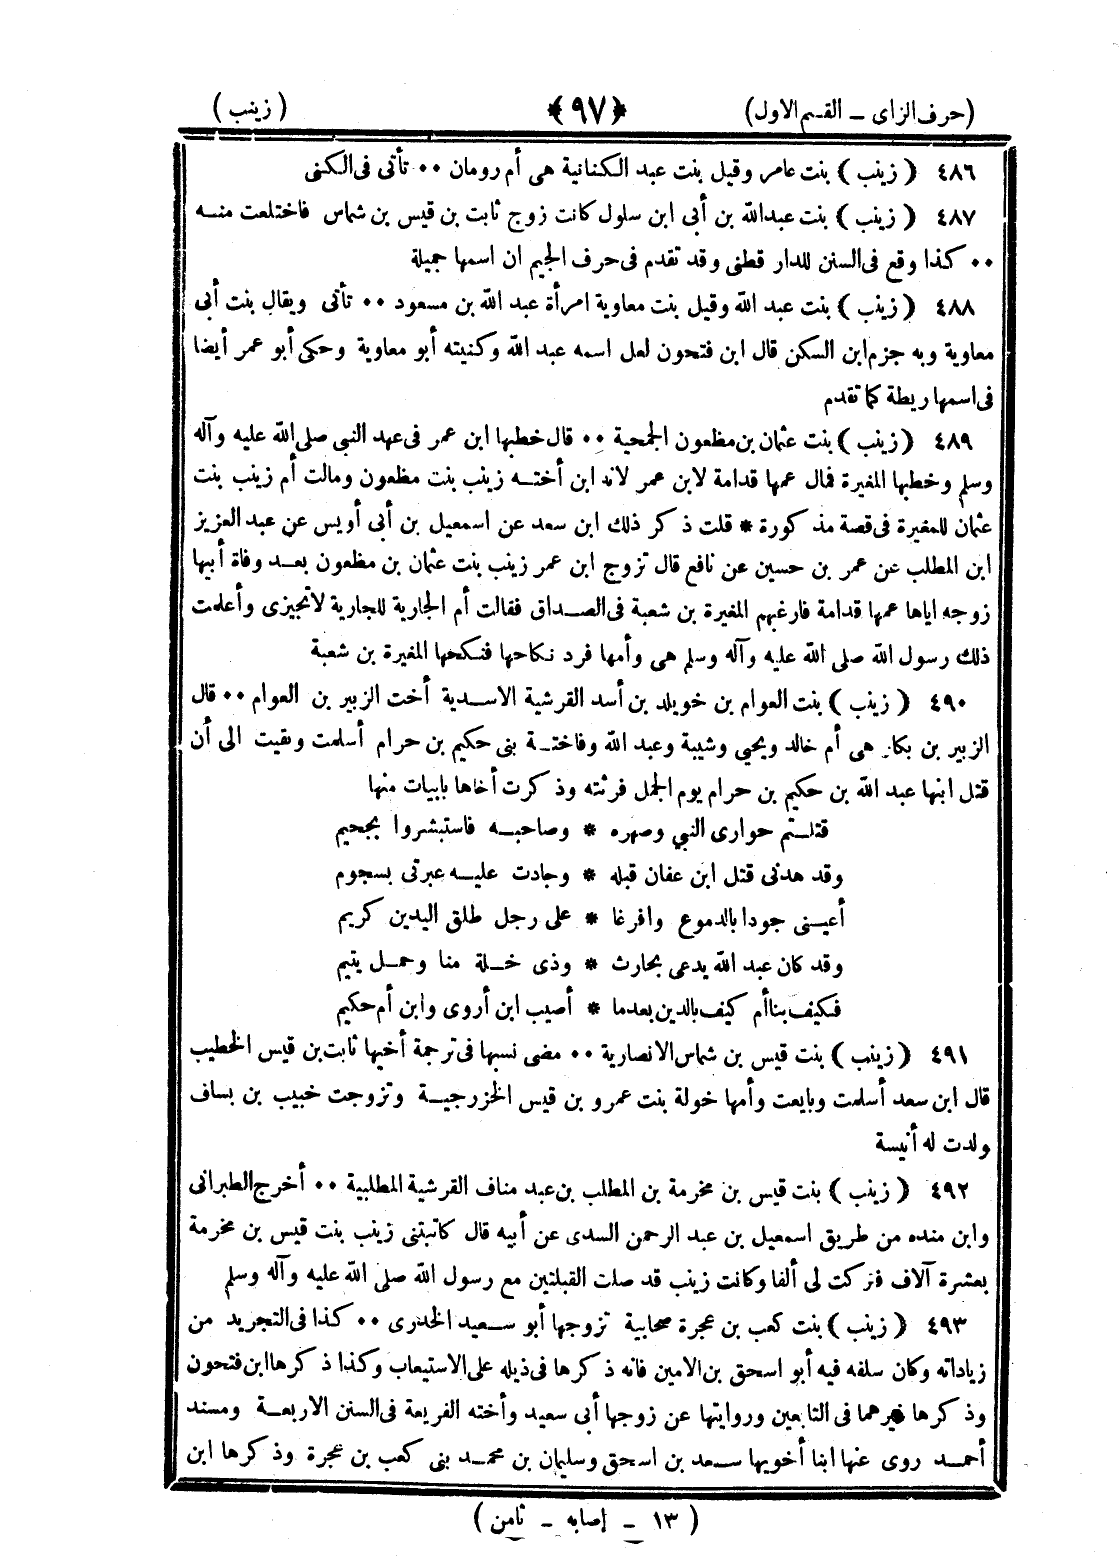 (حرف الزاى ــ القسم الاول) ﴿٩٧﴾ (زينب)
٤٨٦ (زينب) بنت عامر وقيل بنت عبد الكنانية هى أم رومان ٠٠ تأتى فى الكنى
٤٨٧ (زينب) بنت عبدالله بن أبى ابن سلول كانت زوج ثابت بن قيس بن شماس فاختلعت منه
٠٠ كذا وقع فى السنن للدار قطنى وقد تقدم فى حرف الجيم ان اسمها جميلة
٤٨٨ (زينب) بنت عبد الله وقيل بنت معاوية امرأة عبد الله بن مسعود ٠٠ تأتى ويقال بنت أبى
معاوية وبه جزم ابن السكن قال ابن فتحون لعل اسمه عبد الله وكنيته أبو معاوية وحكى أبو عمر أيضا
فى اسمها ريطة كما تقدم
٤٨٩ (زينب) بنت عثمان بن مظعون الجمحية ٠٠ قال خطبها ابن عمر فى عهد النبي صلى الله عليه وآله
وسلم وخطبها المغيرة فمال عمها قدامة لابن عمر لانه ابن أخته زينب بنت مظعون ومالت أم زينب بنت
عثمان للمغيرة فى قصة مذكورة * قلت ذكر ذلك ابن سعد عن اسمعيل بن أبى أويس عن عبد العزيز
ابن المطلب عن عمر بن حسين عن نافع قال تزوج ابن عمر زينب بنت عثمان بن مظعون بعد وفاة أبيها
زوجه اياها عمها قدامة فارغبهم المغيرة بن شعبة فى الصداق فقالت أم الجارية للجارية لاتجيزى وأعلمت
ذلك رسول الله صلى الله عليه وآله وسلم هى وأمها فرد نكاحها فنكحها المغيرة بن شعبة
٤٩٠ (زينب) بنت العوام بن خويلد بن أسد القرشية الاسدية أخت الزبير بن العوام ٠٠ قال
الزبير بن بكار هى أم خالد ويحيي وشيبة وعبد الله وفاختة بنى حكيم بن حرام أسلمت وبقيت الى أن
قتل ابنها عبد الله بن حكيم بن حرام يوم الجمل فرثته وذكرت أخاها بابيات منها
قتلتم حوارى النبي وصهره * وصاحبه فاستبشروا بجحيم
وقد هدنى قتل ابن عفان قبله * وجادت عليه عبرتى بسجوم
أعينى جودا بالدموع وافرغا * على رجل طلق اليدين كريم
وقد كان عبد الله يدعى بحارث * وذى خلة منا وحمل يتيم
فكيف بنا أم كيف بالدين بعدما * أصيب ابن أروى وابن أم حكيم
٤٩١ (زينب) بنت قيس بن شماس الانصارية ٠٠ مضى نسبها فى ترجمة أخيها ثابت بن قيس الخطيب
قال ابن سعد أسلمت وبايعت وأمها خولة بنت عمرو بن قيس الخزرجية وتزوجت خبيب بن يساف
ولدت له أنيسة
٤٩٢ (زينب) بنت قيس بن مخرمة بن المطلب بن عبد مناف القرشية المطلبية ٠٠ أخرج الطبرانى
وابن منده من طريق اسمعيل بن عبد الرحمن السدى عن أبيه قال كاتبتنى زينب بنت قيس بن مخرمة
بعشرة آلاف فتركت لى ألفا وكانت زينب قد صلت القبلتين مع رسول الله صلى الله عليه وآله وسلم
٤٩٣ (زينب) بنت كعب بن عجرة صحابية تزوجها أبو سعيد الخدرى ٠٠ كذا فى التجريد من
زياداته وكان سلفه فيه أبو اسحق بن الامين فانه ذكرها فى ذيله على الاستيعاب وكذا ذكرها ابن فتحون
وذكرها غيرهما فى التابعين وروايتها عن زوجها أبى سعيد وأخته الفريعة فى السنن الاربعة ومسند
أحمد روى عنها ابنا أخويها سعد بن اسحق وسليمان بن محمد بنى كعب بن عجرة وذكرها ابن
(١٣ ــ إصابه ــ ثامن)